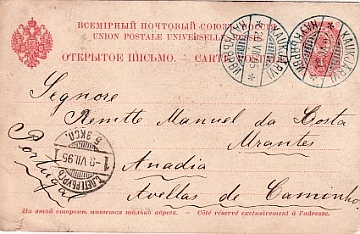 ВСЕМІРНЫЙ ПОЧТОВЫЙ СОЮЗЪ
UNION POSTALE UNIVERSELLE
ОТКРЫТОЕ ПИСЬМО. — CARTE POSTALE
KAUKJÄRVI
20 VII.95
Segnore
Remtte Manuel da Costa
Mrantes
Anadia
Avellas de Caminho
Portugal
С.ПЕТЕРБУРГЪ
9 VII.95
5 ЭКСП.
1
На этой сторонѣ пишется только адресъ. — Côté réservé exclusivement à l'adresse.